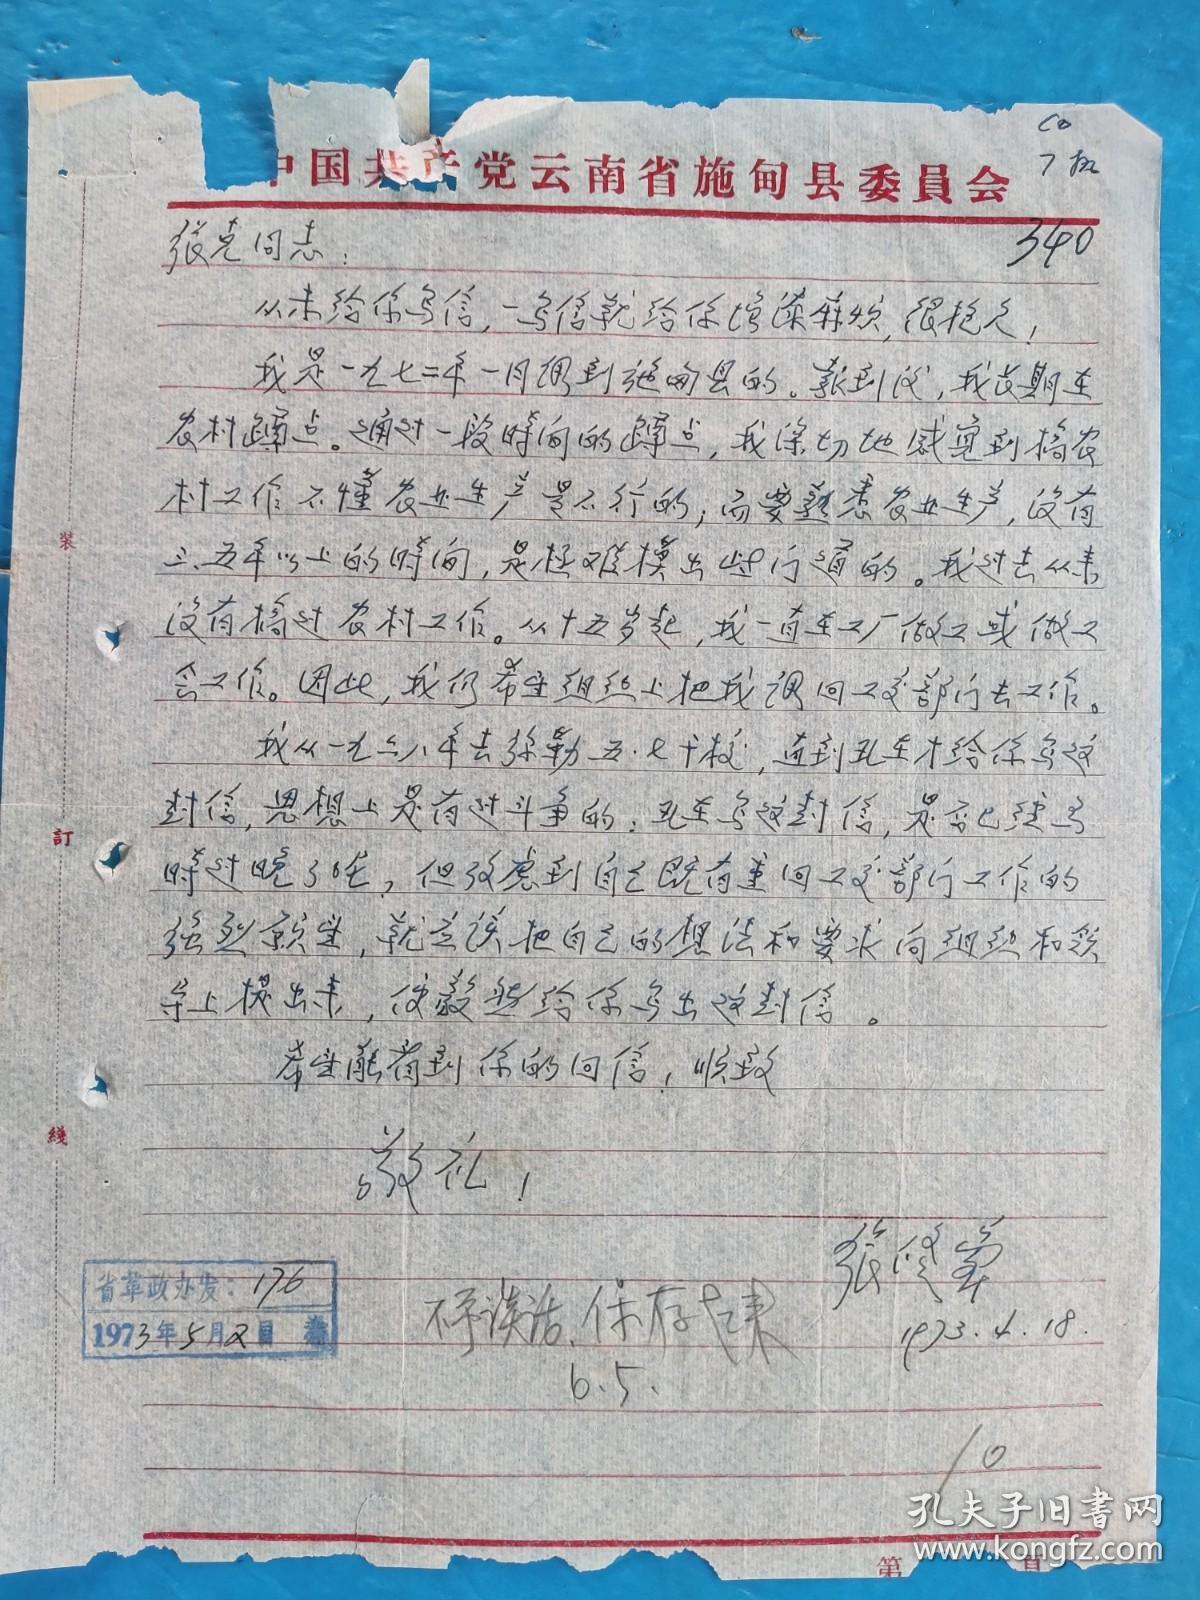 中国共产党云南省施甸县委員会
340
张克同志：
从未给你写信，一写信就给你增添麻烦，很抱欠！
我是一九七二年一月调到施甸县的。报到后，我长期在
农村蹲点。通过一段時间的蹲点，我深切地感覚到搞农
村工作不懂农业生产是不行的；而要熟悉农业生产，没有
三、五年以上的時间，是极难摸出些门道的。我过去从来
没有搞过农村工作。从十五岁起，我一直在工厂做工或做工
会工作。因此，我仍希望组织上把我调回工交部门去工作。
我从一九六八年去弥勒五·七干校，直到现在才给你写这
封信，思想上是有过斗争的：现在写这封信，是否已经写
時过晚了呢，但考虑到自己既有重回工交部门工作的
强烈願望，就应该把自己的想法和要求向组织和领
导上提出来，便毅然给你写出这封信。
希望能看到你的回信，顺致
敬礼！
1973.4.18.
省革政办发：176
1973年5月2日
保存起来
6.5.
10
装
訂
綫
第 頁
孔夫子旧書网
www.kongfz.com